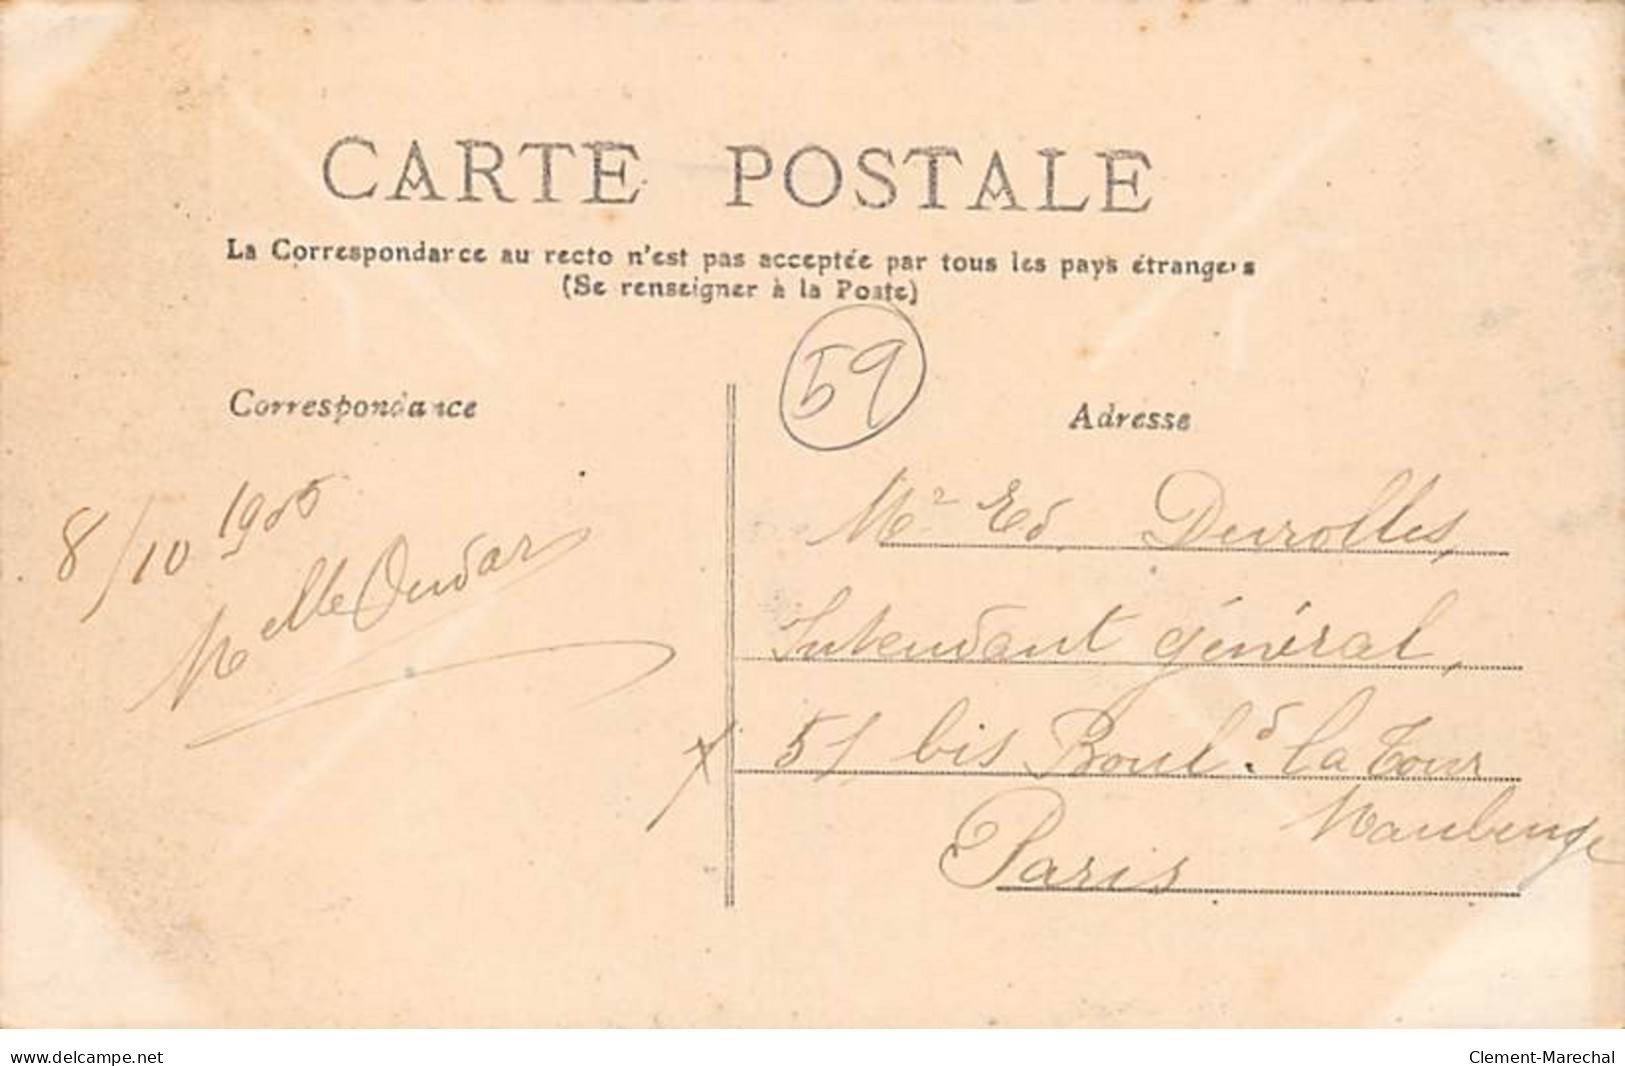 CARTE POSTALE
La Correspondance au recto n'est pas acceptée par tous les pays étrangers
(Se renseigner à la Poste)
59
Correspondance
8/10 1905
Melle Oudar
Adresse
Mr Ed. Devrolles,
Intendant général,
51 bis Boul.d la Tour
Maubourg
Paris
delcampe.net
Clement-Marechal